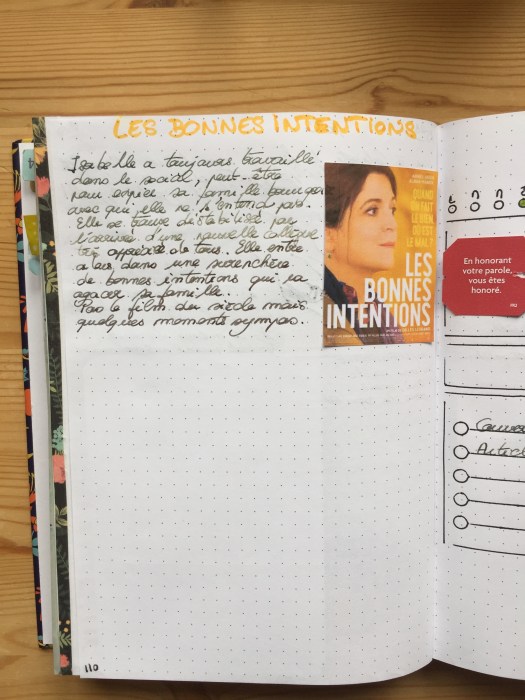 LES BONNES INTENTIONS
Isabelle a toujours travaillé
dans le social, peut-être
pour expier sa famille bourgeoise
avec qui elle ne s'entend pas.
Elle se trouve déstabilisée par
l'arrivée d'une nouvelle collègue
très appréciée de tous. Elle entre
alors dans une surenchère
de bonnes intentions qui va
agacer sa famille.
Pas le film du siècle mais
quelques moments sympas.
QUAND
ON FAIT
LE BIEN,
OÙ EST
LE MAL ?
LES
BONNES
INTENTIONS
110
L U N D
En honorant
votre parole,
vous êtes
honoré.